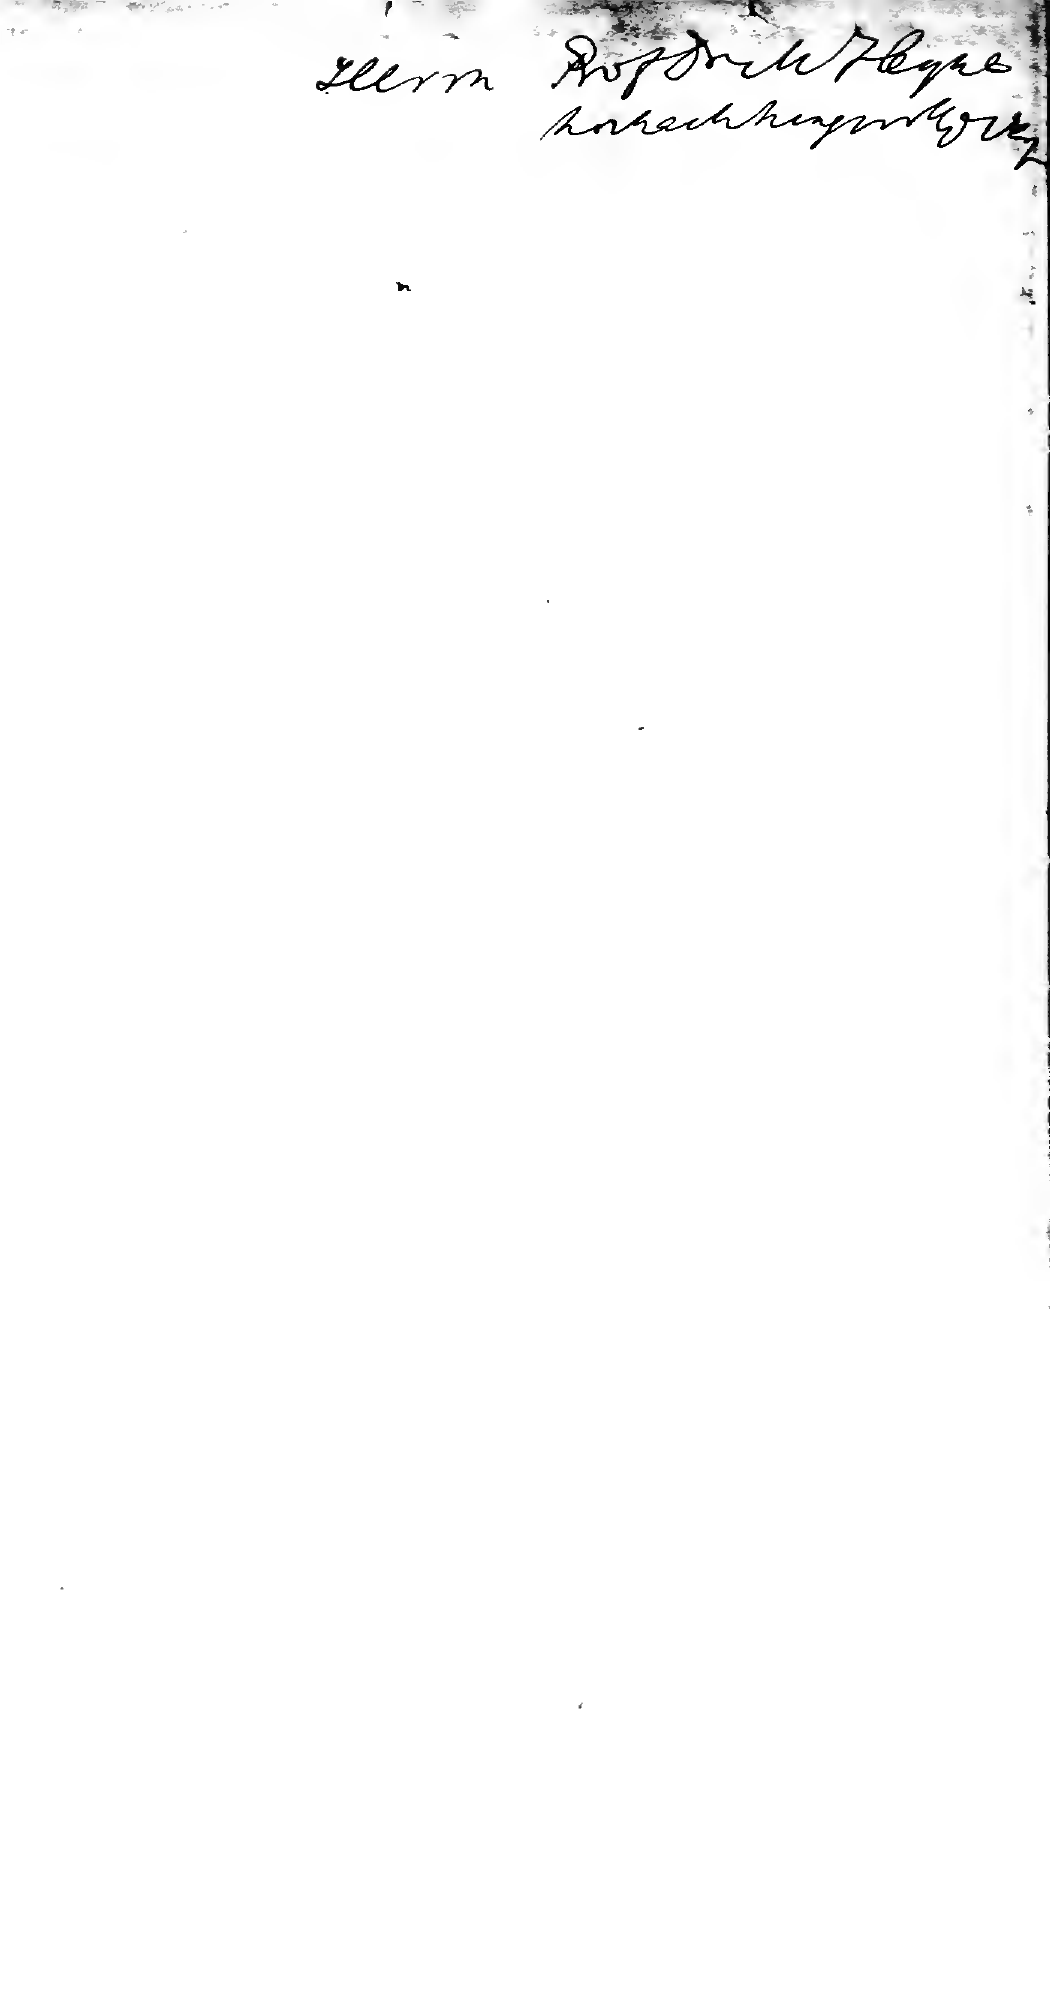 Herrn Prof Dr M Heyne
hochachtungsvoll